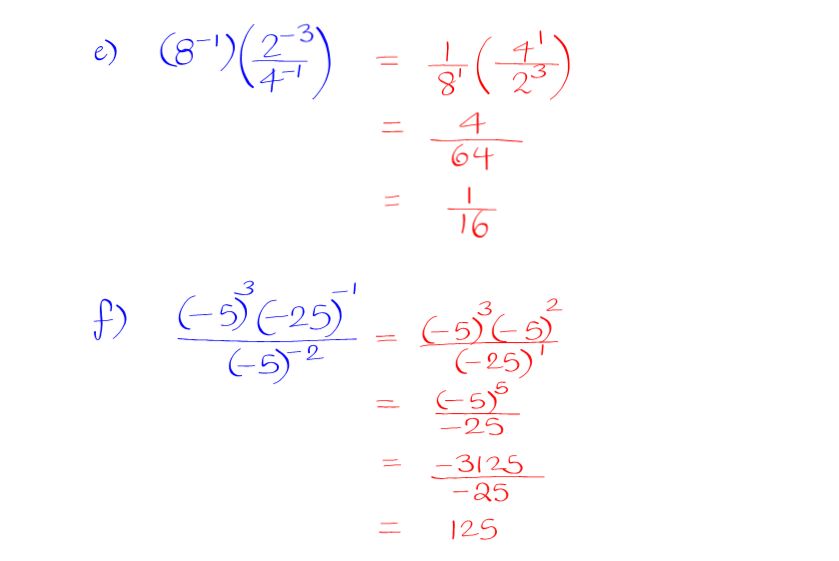 e) (8⁻¹)(2⁻³/4⁻¹) = 1/8¹ (4¹/2³)
= 4/64
= 1/16
f) (-5)³(-25)⁻¹/(-5)⁻² = (-5)³(-5)²/(-25)¹
= (-5)⁵/-25
= -3125/-25
= 125